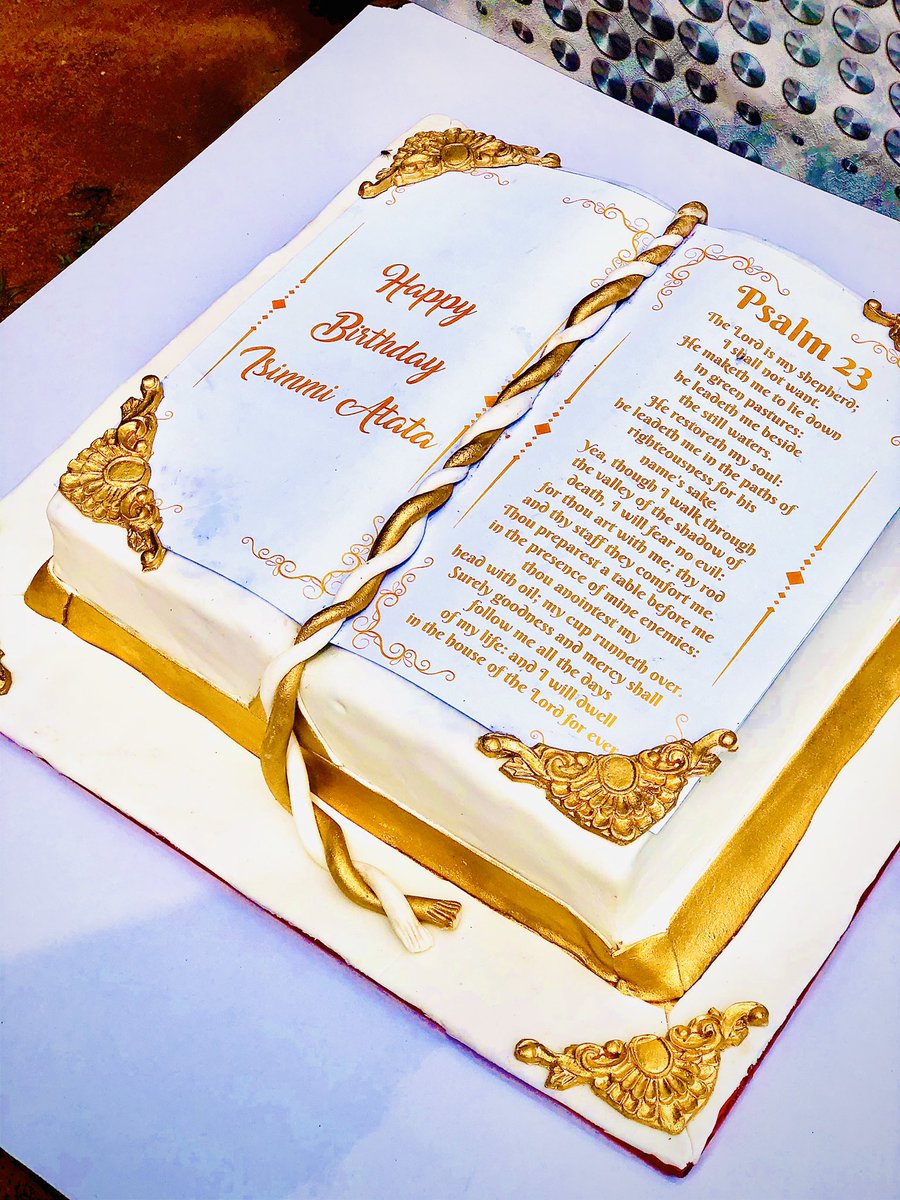 Happy
Birthday
Isimmi Atata
Psalm 23
The Lord is my shepherd;
I shall not want.
He maketh me to lie down
in green pastures:
he leadeth me beside
the still waters.
He restoreth my soul:
he leadeth me in the paths of
righteousness for his
name's sake.
Yea, though I walk through
the valley of the shadow of
death, I will fear no evil:
for thou art with me; thy rod
and thy staff they comfort me.
Thou preparest a table before me
in the presence of mine enemies:
thou anointest my
head with oil; my cup runneth over.
Surely goodness and mercy shall
follow me all the days
of my life: and I will dwell
in the house of the Lord for ever